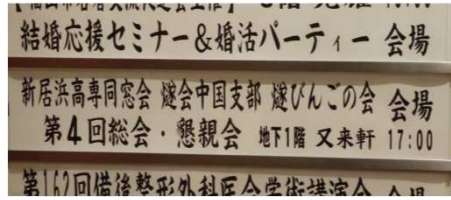 結婚応援セミナー&婚活パーティー 会場
新居浜高専同窓会 燧会中国支部 燧びんごの会 会場
第4回総会・懇親会 地下1階 又来軒 17:00
第162回備後整形外科医会学術講演会 会場